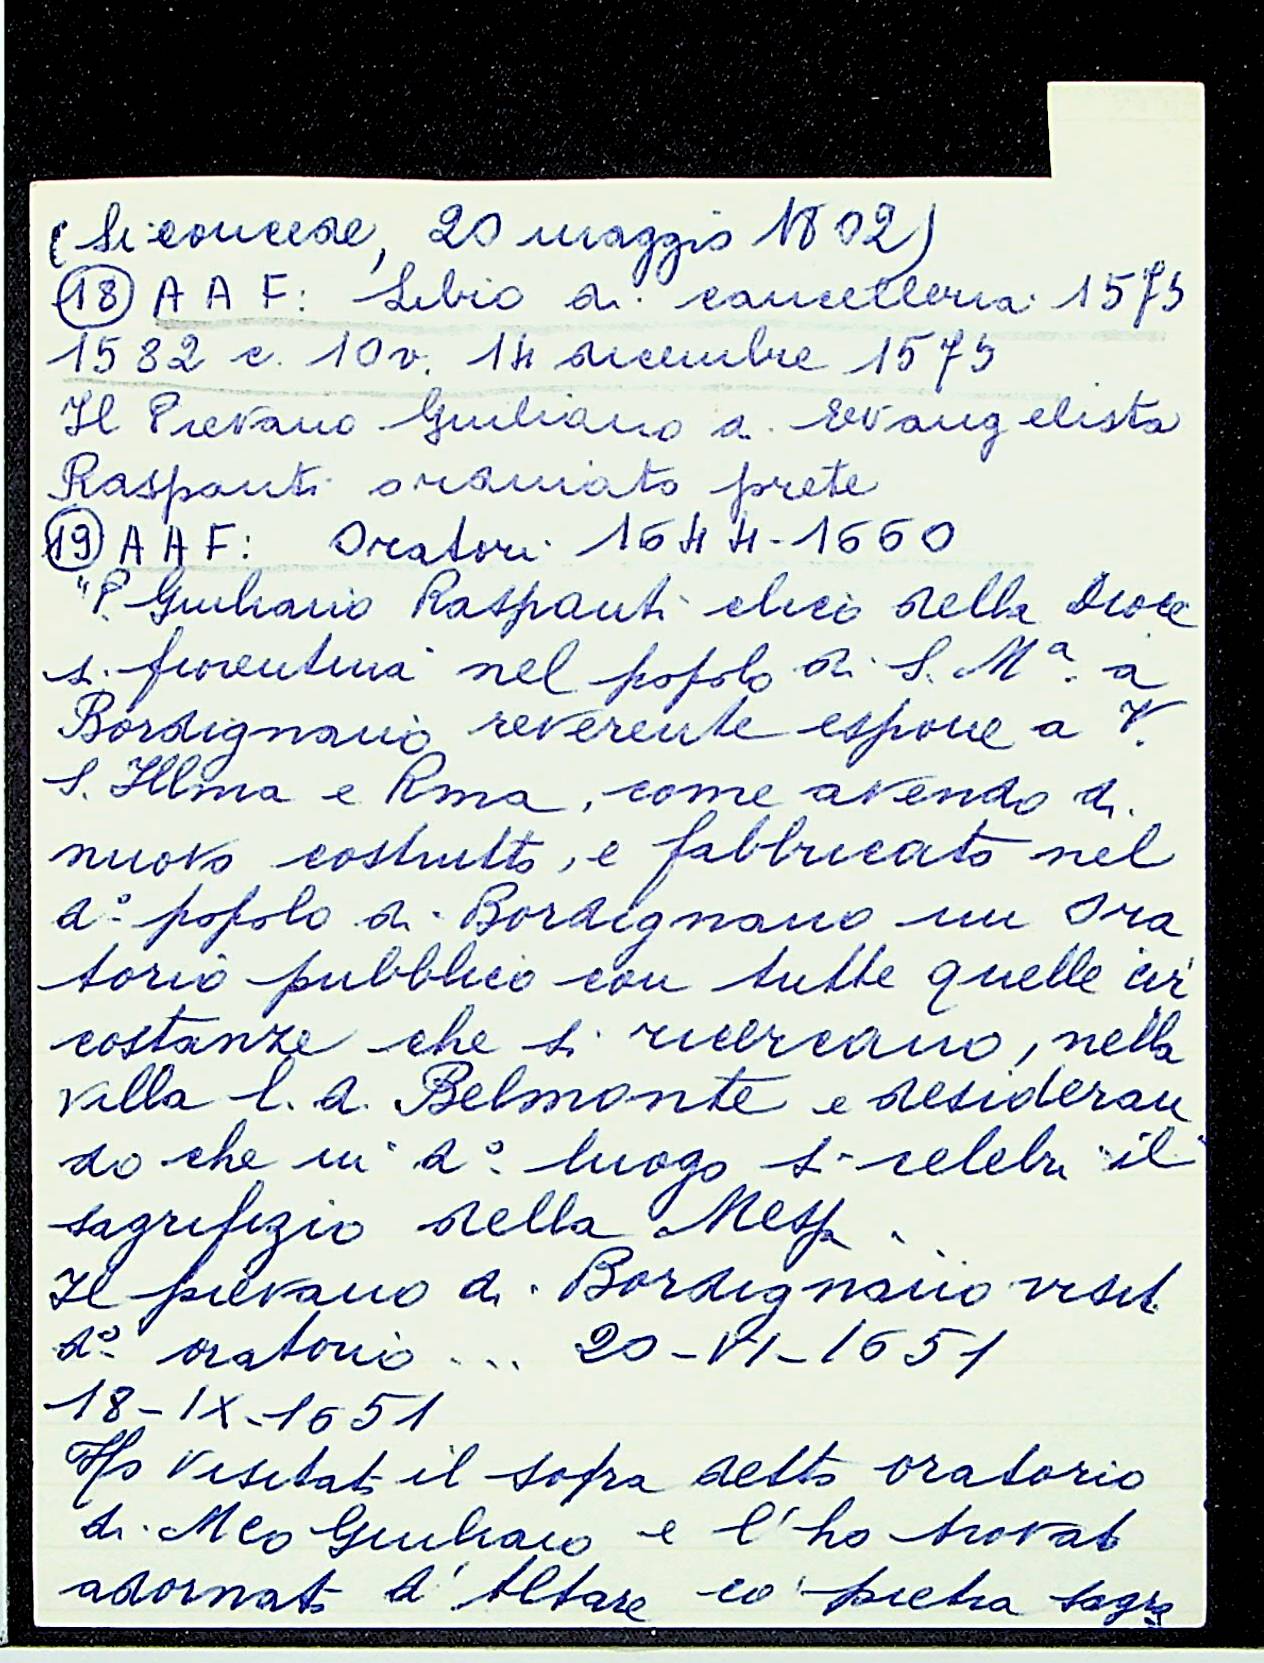 (Si concede, 20 maggio 1802)
(18) A A F: Libro di cancelleria 1575
1582 c. 10v. 14 dicembre 1575
Il Pievano Giuliano d. Evangelista
Raspanti ordinato prete
(19) A A F: Oratori 1644-1660
"P. Giuliano Raspanti clico della Dioce
si fiorentina nel popolo di S. Mª. a
Bordignano reverente espone a V.
S. Illma e Rma, come avendo di
nuovo costrutto, e fabbricato nel
dº popolo di Bordignano un Ora
torio pubblico con tutte quelle cir
costanze che si ricercano, nella
villa l. d. Belmonte e desideran
do che in dº luogo si celebri il
sagrifizio della Messa.
Il pievano di Bordignano visit
dº oratorio ... 20-VI-1651
18-IX-1651
Ho visitato il sopra detto oratorio
di Meo Giuliano e l'ho trovato
adornato d'Altare co' pietra sagra